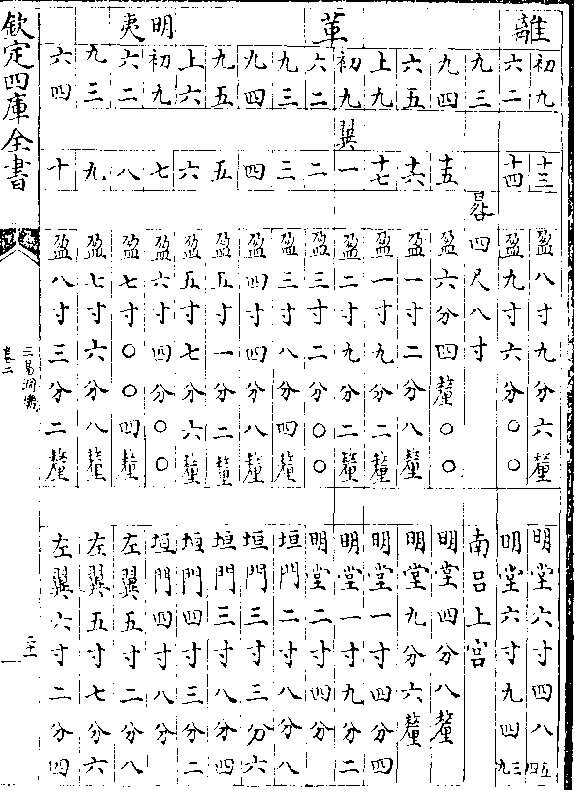 離
初九 十三 盈八寸九分六釐 明堂六寸四八四五
六二 十四 盈九寸六分〇〇 明堂六寸九四三九
九三 晷四尺八寸 南呂上宮
九四 十五 盈六分四釐〇〇 明堂四分八釐
六五 十六 盈一寸二分八釐 明堂九分六釐
上九 十七 盈一寸九分二釐 明堂一寸四分四
革
初九 翼一 盈二寸九分二釐 明堂一寸九分二
六二 二 盈三寸二分〇〇 明堂二寸四分
九三 三 盈三寸八分四釐 垣門二寸八分八
九四 四 盈四寸四分八釐 垣門三寸三分六
九五 五 盈五寸一分二釐 垣門三寸八分四
上六 六 盈五寸七分六釐 垣門四寸三分二
明夷
初九 七 盈六寸四分〇〇 垣門四寸八分
六二 八 盈七寸〇〇四釐 左翼五寸二分八
九三 九 盈七寸六分八釐 左翼五寸七分六
六四 十 盈八寸三分二釐 左翼六寸二分四
欽定四庫全書
三易洞璣
卷二